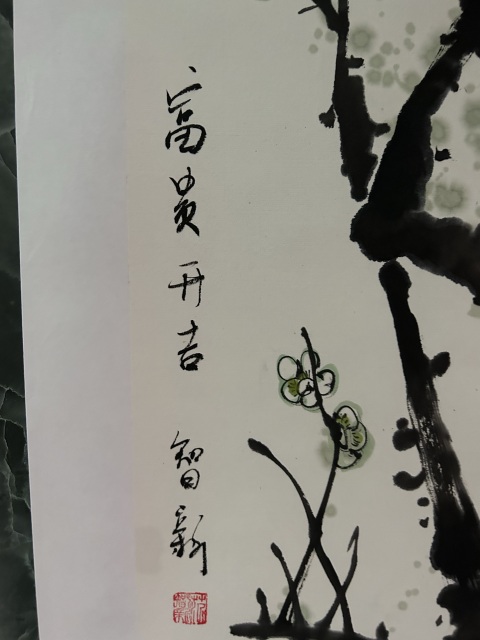 富贵开吉 智新